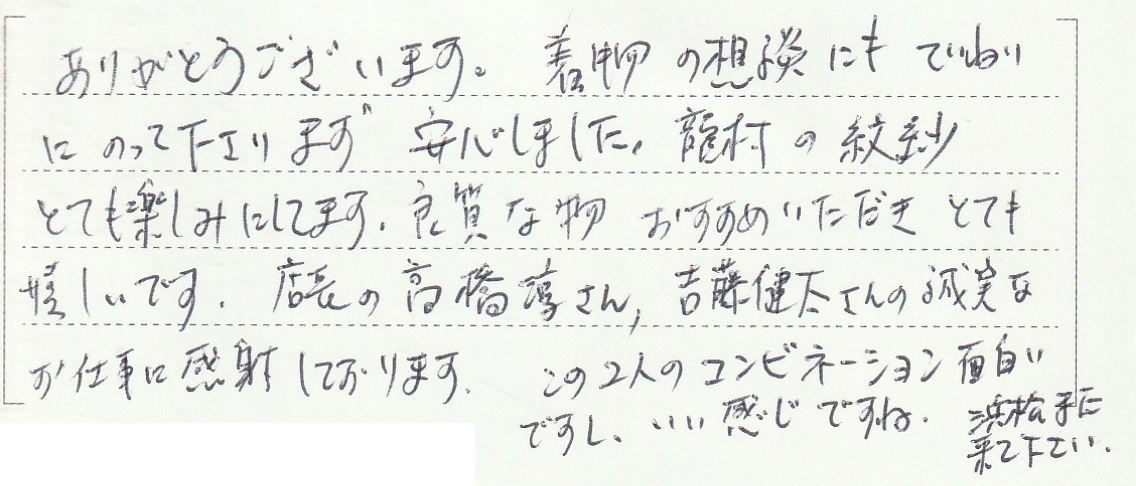 ありがとうございます。着物の想談にも ていねい
にのって下さります 安心しました。龍村の紋紗
とても楽しみにしてます。良質な物 おすすめいただき とても
嬉しいです。店長の高橋淳さん, 吉藤健太さんの誠実な
お仕事に感射しております。この2人のコンビネーション面白い
ですし、いい感じですね。
浜松手に
来て下さい。